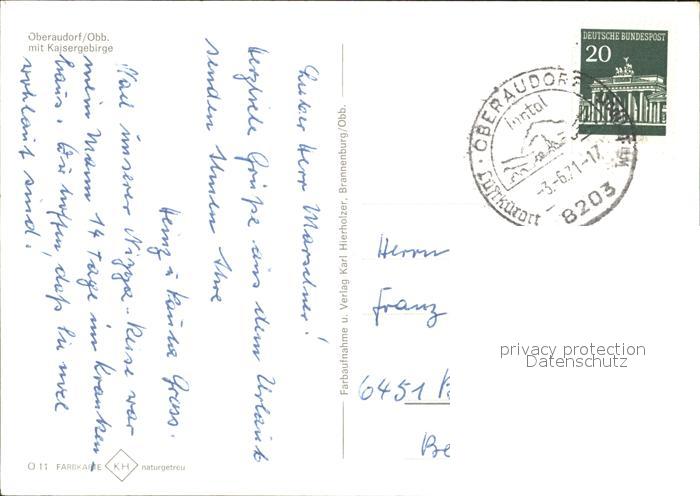 Oberaudorf/Obb.
mit Kaisergebirge
Lieber Herr Marschner!
herzliche Grüße aus dem Urlaub
senden Ihnen Ihre
Heinz u Gross.
Nach unserer Nizza-Reise war
mein Mann 14 Tage im Kranken-
haus. Wir hoffen, daß Sie
wohlauf sind!
O 11 FARBKARTE KH naturgetreu
Farbaufnahme u. Verlag Karl Hierholzer, Brannenburg/Obb.
DEUTSCHE BUNDESPOST
20
OBERAUDORF
Inntal
-3.-6.71-17
Luftkurort
8203
Herrn
Franz
6451
Be
privacy protection
Datenschutz